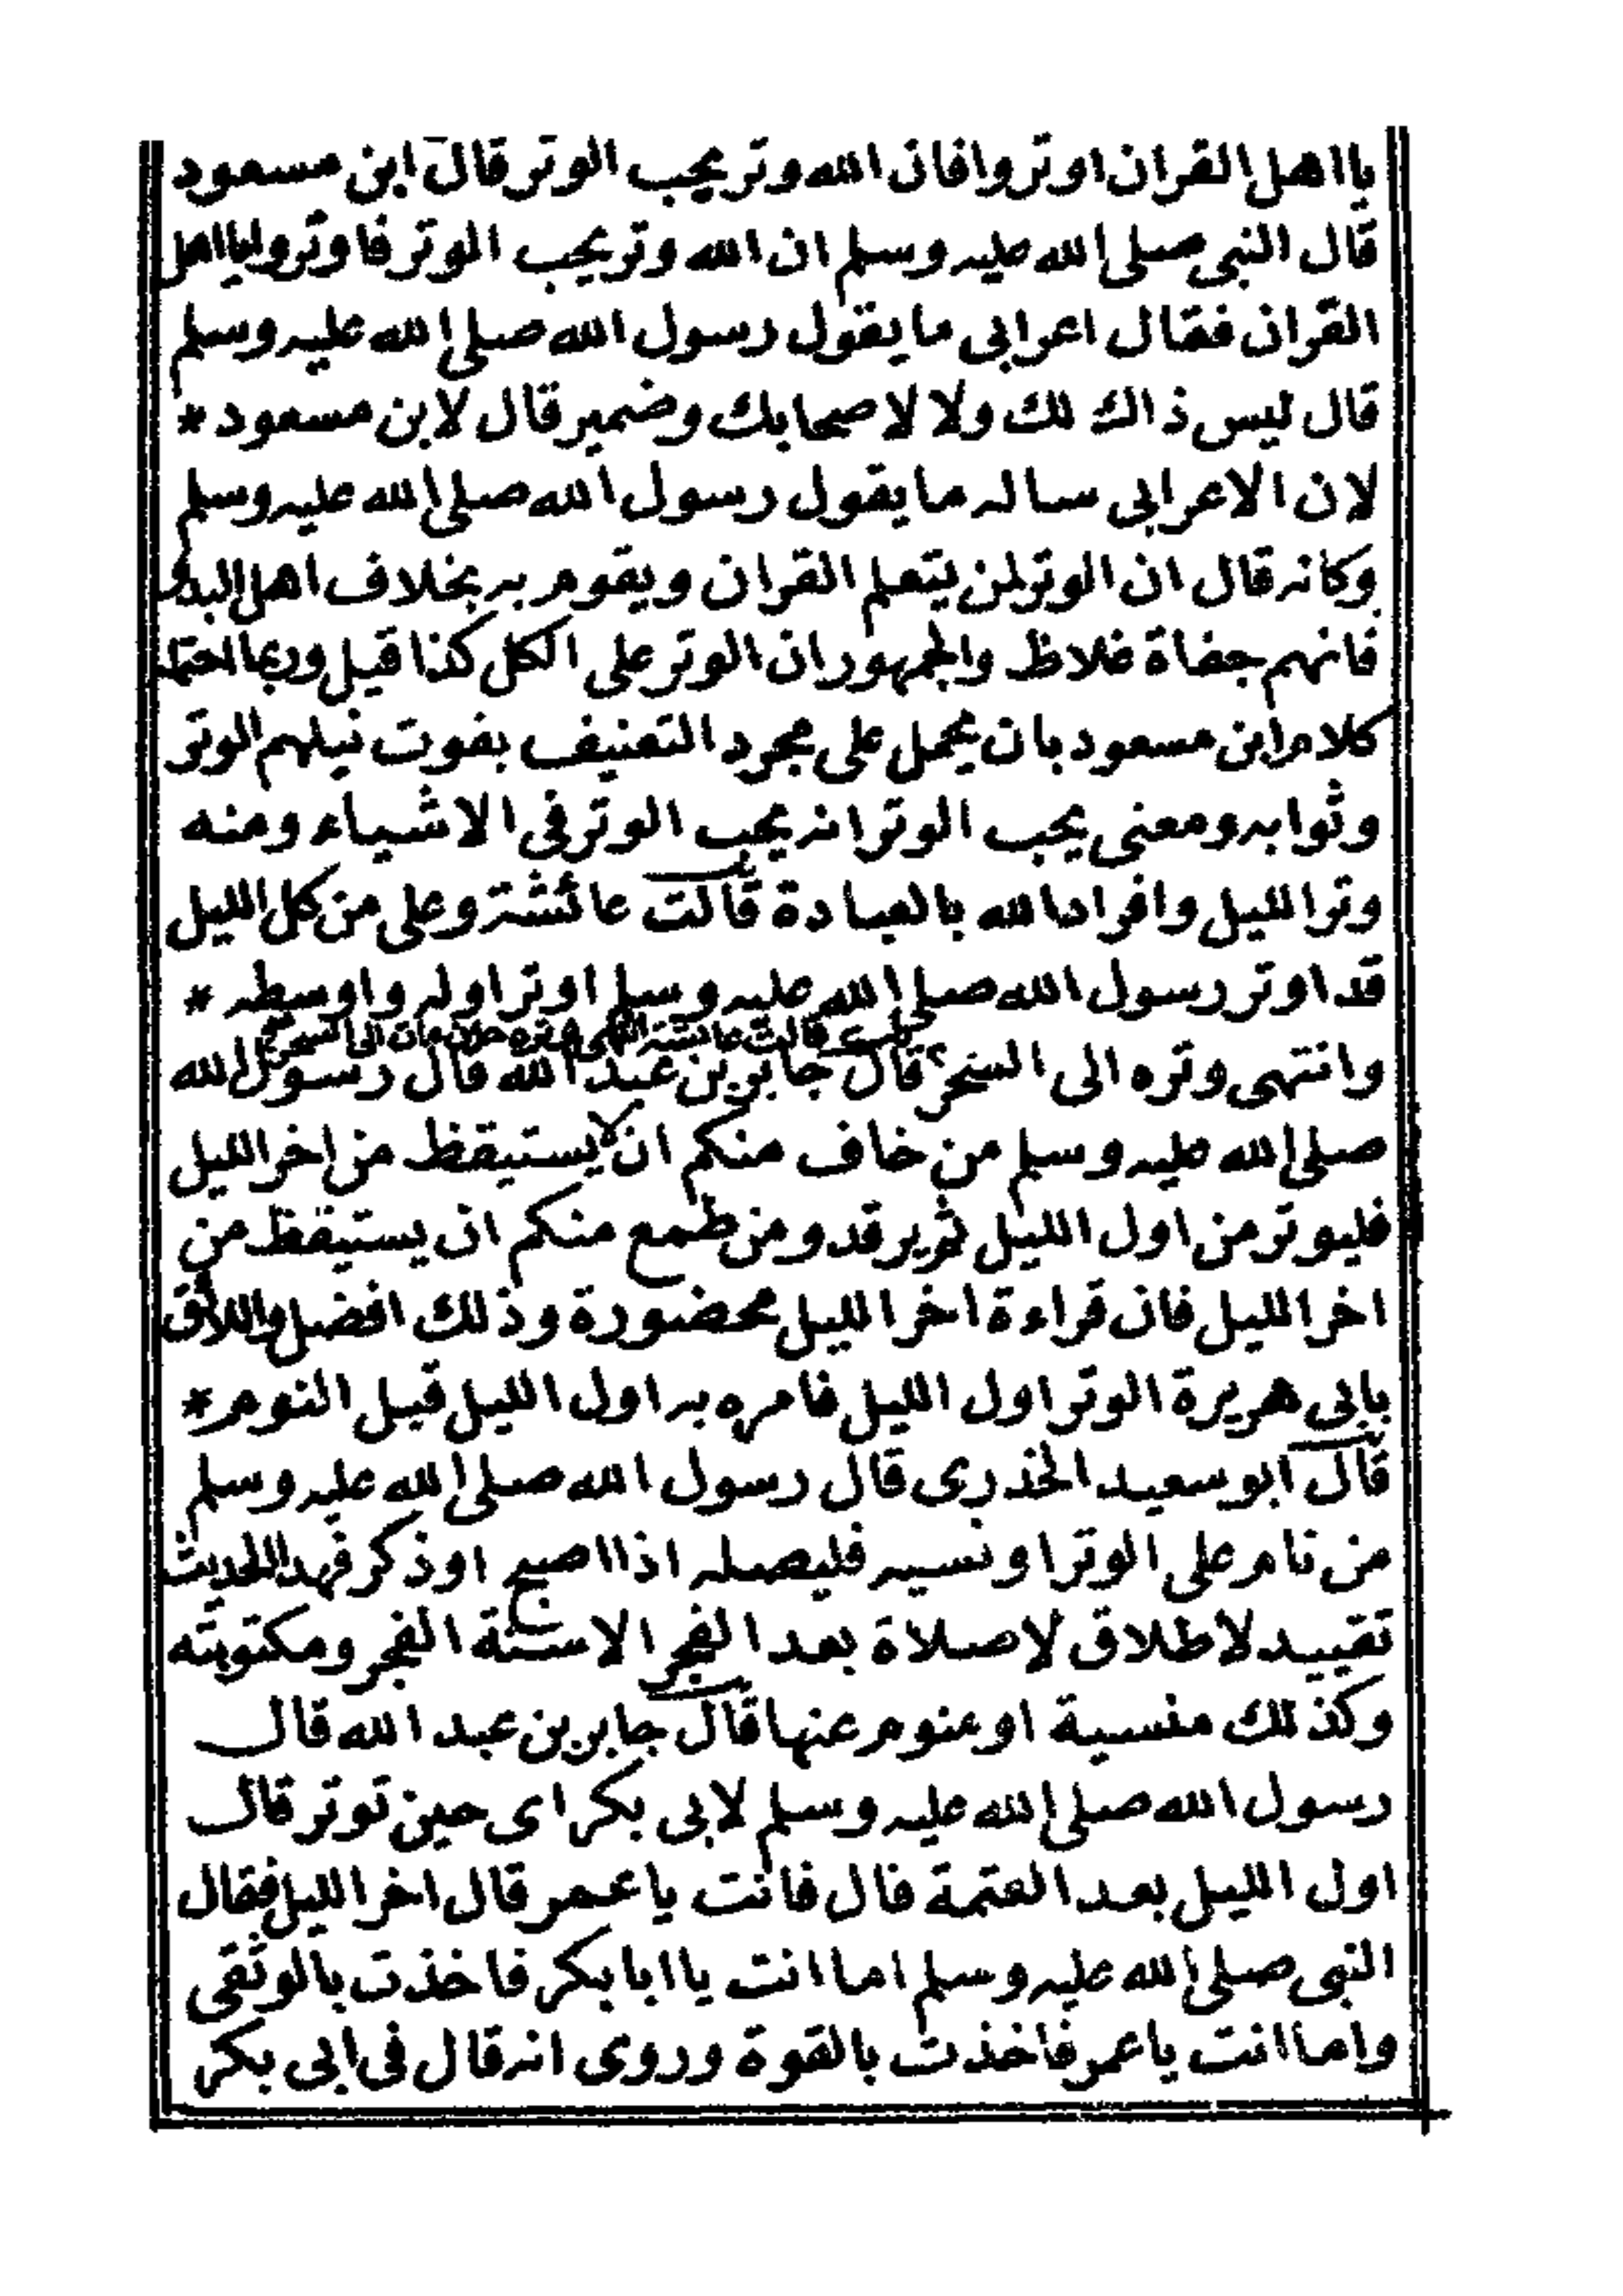 يااهل القران اوتروا فان الله وتر يحب الوتر قال ابن مسعود
قال النبي صلى الله عليه وسلم ان الله وتر يحب الوتر فاوتروا يااهل
القران فقال اعرابي ما يقول رسول الله صلى الله عليه وسلم
قال ليس ذاك لك ولا لاصحابك وضمير قال لابن مسعود *
لان الاعرابي ساله ما يقول رسول الله صلى الله عليه وسلم
وكانه قال ان الوتر لمن يتعلم القران ويقوم به بخلاف اهل البدو
فانهم جفاة غلاظ والجمهور ان الوتر على الكل كذا قيل وربما احتمل
كلام ابن مسعود بان يحمل على مجرد التعنيف بفوت نيلهم الوتر
وثوابه ومعنى يحب الوتر انه يحب الوتر في الاشياء ومنه
وتر الليل وافراد الله بالعبادة قالت عائشة وعلى من كل الليل
قد اوتر رسول الله صلى الله عليه وسلم اوتر اوله واوسطه *
قالت عايشة انتهى وتره حين مات الى السحر
وانتهى وتره الى السحر قال جابر بن عبد الله قال رسول الله
صلى الله عليه وسلم من خاف منكم ان لا يستيقظ من اخر الليل
فليوتر من اول الليل ثم يرقد ومن طمع منكم ان يستيقظ من
اخر الليل فان قراءة اخر الليل محضورة وذلك افضل واللائق
بابي هريرة الوتر اول الليل فامره به اول الليل قبل النوم *
قال ابو سعيد الخذري قال رسول الله صلى الله عليه وسلم
من نام على الوتر او نسيه فليصله اذا اصبح او ذكر فهذا الحديث
تقييد لاطلاق لا صلاة بعد الفجر الا سنة الفجر ومكتوبته
وكذلك منسية او منوم عنها قال جابر بن عبد الله قال
رسول الله صلى الله عليه وسلم لابي بكر اى حين توتر قال
اول الليل بعد العتمة قال فانت يا عمر قال اخر الليل فقال
النبى صلى الله عليه وسلم اما انت يا ابا بكر فاخذت بالوثقى
واما انت يا عمر فاخذت بالقوة وروى انه قال في ابي بكر